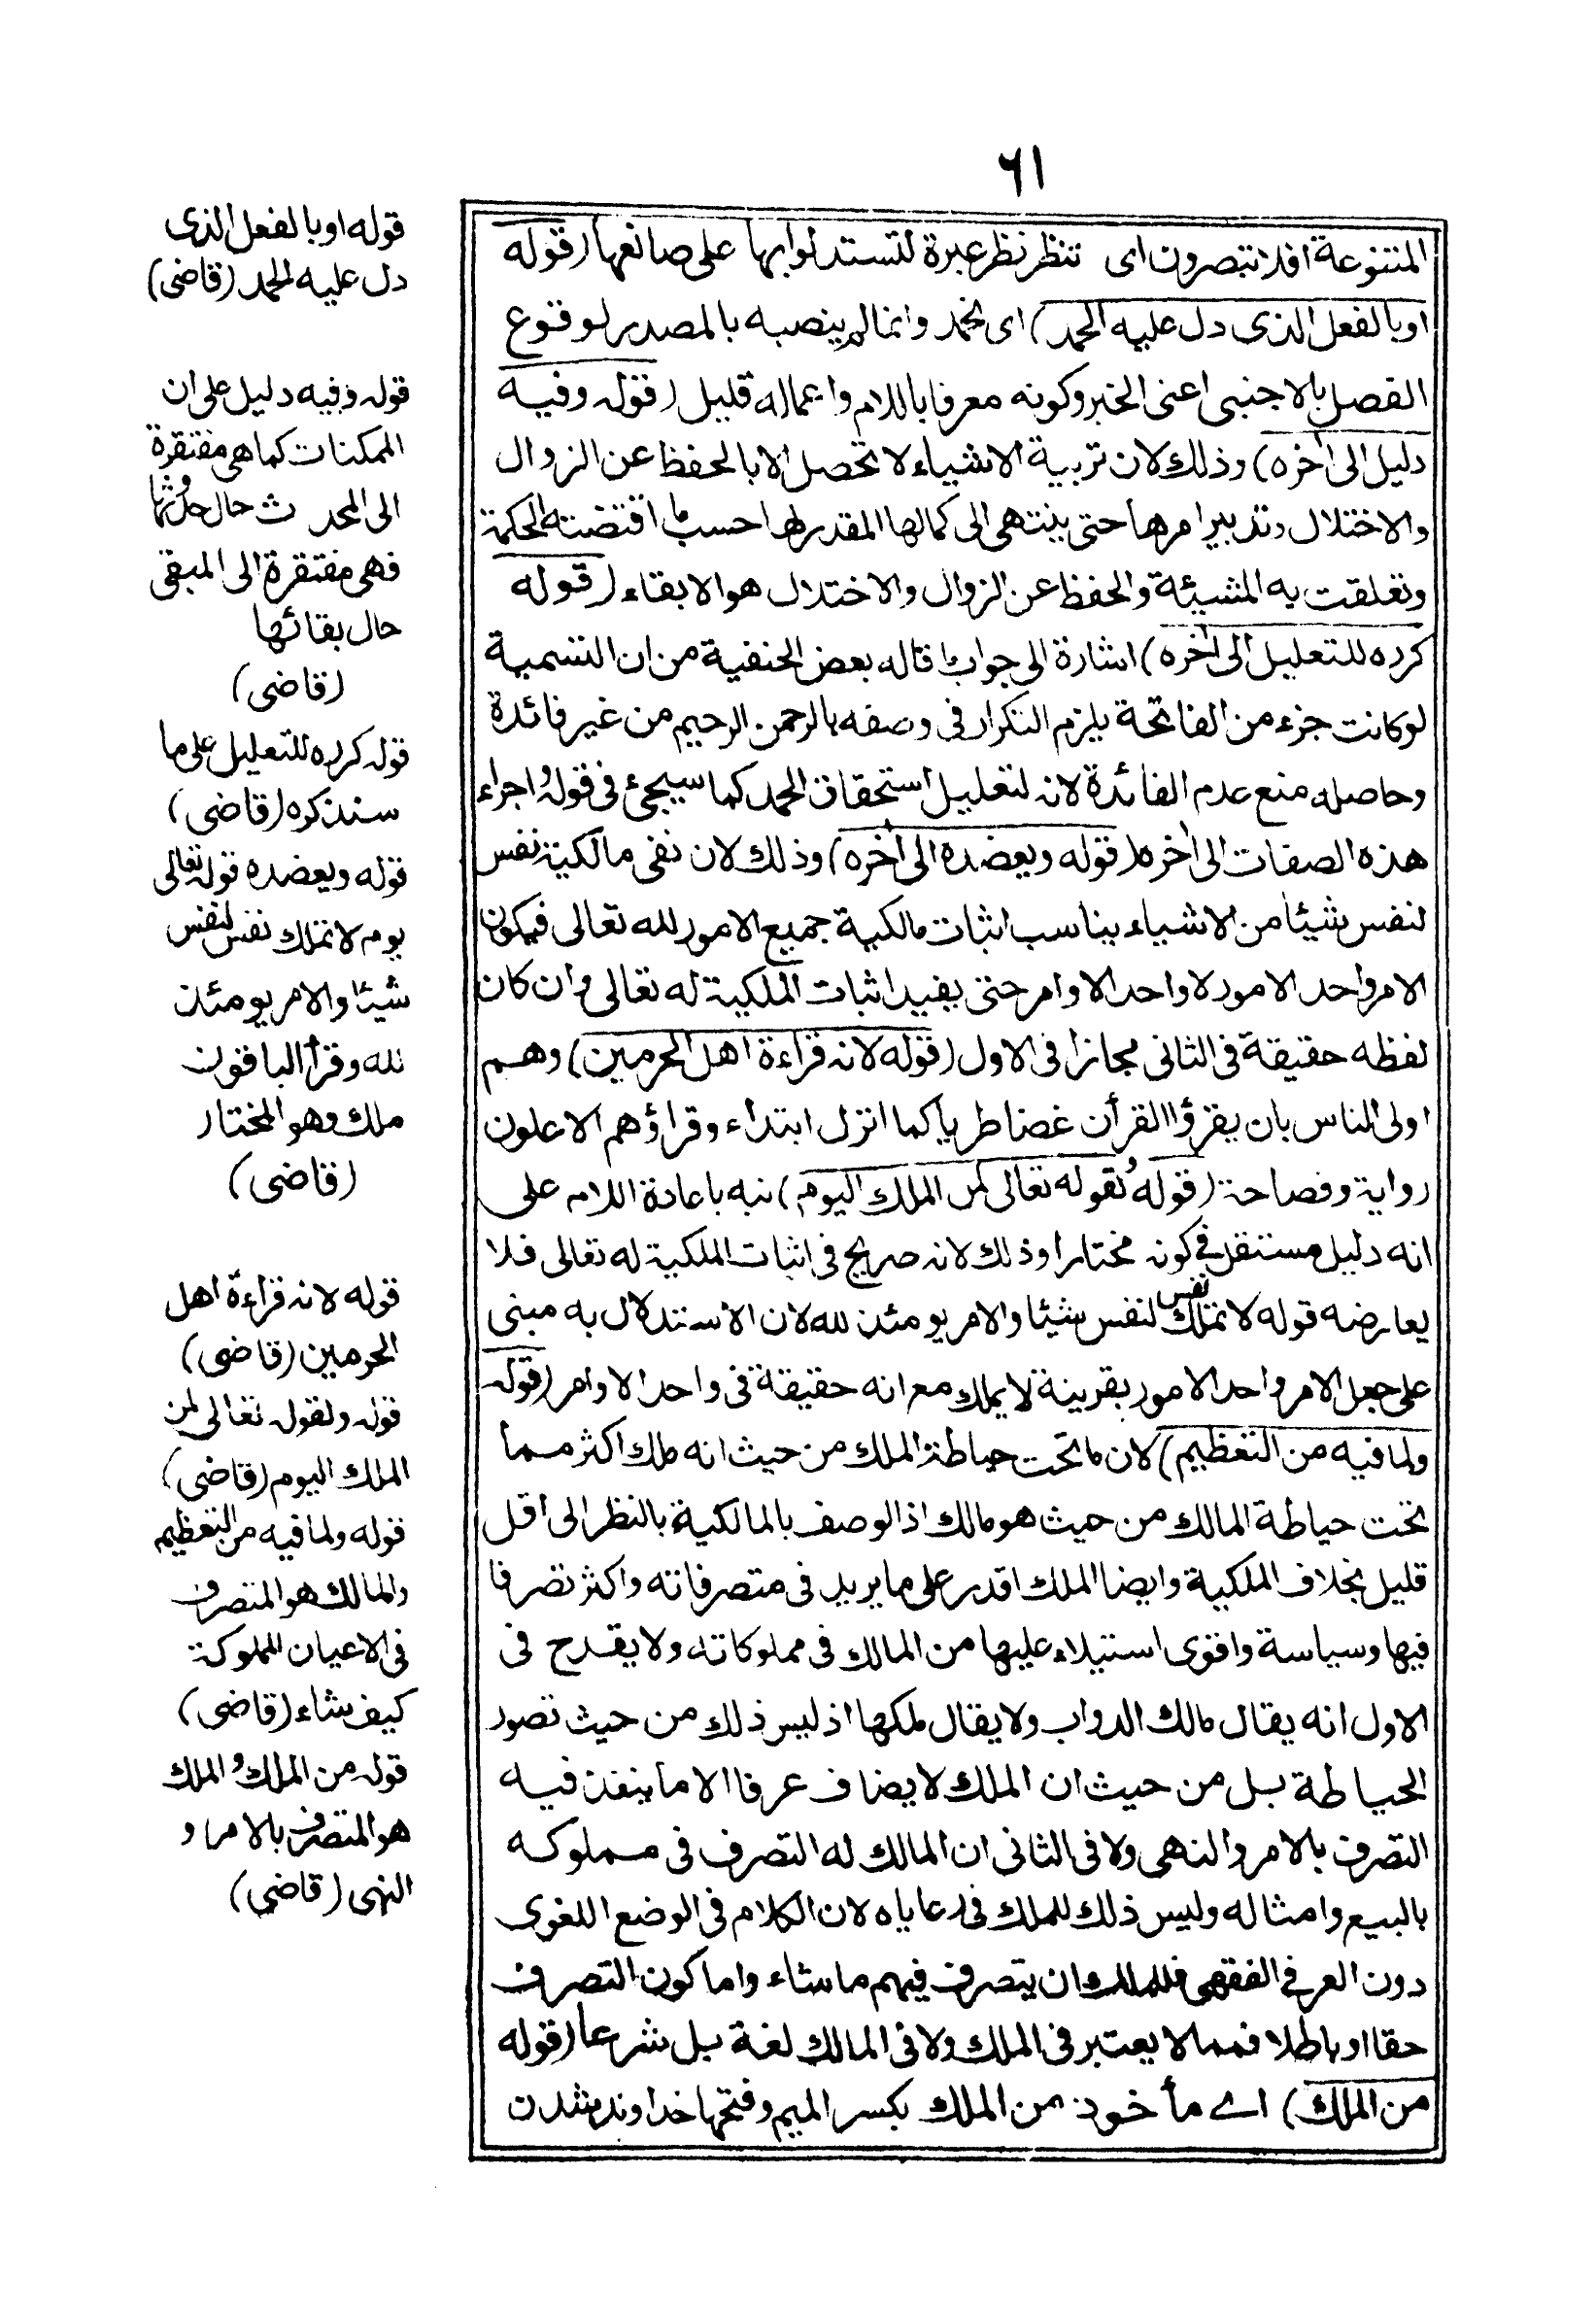 ٦١
المتنوعة افلا تبصرون اى تنظر نظر عبرة لتستدلوا بها على صانعها (قوله
او بالفعل الذى دل عليه الحمد) اى نحمد وانما لم ينصبه بالمصدر لوقوع
الفصل بالاجنبى اعنى الخبر وكونه معرفا باللام واعماله قليل (قوله وفيه
دليل الى اخره) وذلك لان تربية الاشياء لا تحصل الا بالحفظ عن الزوال
والاختلال وتدبير امرها حتى ينتهى الى كمالها المقدر لها حسب ما اقتضته الحكمة
وتعلقت به المشيئة والحفظ عن الزوال والاختلال هو الابقاء (قوله
كرده للتعليل الى اخره) اشارة الى جواب ما قاله بعض الحنفية من ان التسمية
لو كانت جزء من الفاتحة يلزم التكرار فى وصفه بالرحمن الرحيم من غير فائدة
وحاصله منع عدم الفائدة لانه لتعليل استحقاق الحمد كما سيجئ فى قوله واجراء
هذه الصفات الى اخره (قوله ويعضده الى اخره) وذلك لان نفى مالكية نفس
لنفس شيئا من الاشياء يناسب اثبات مالكية جميع الامور لله تعالى فيكون
الامر واحد الامور لا واحد الاوامر حتى يفيد اثبات الملكية له تعالى وان كان
لفظه حقيقة فى الثانى مجازا فى الاول (قوله لانه قراءة اهل الحرمين) وهم
اولى الناس بان يقرؤا القرأن غضا طريا كما انزل ابتداء وقراؤهم الاعلون
رواية وفصاحة (قوله ولقوله تعالى لمن الملك اليوم) نبه باعادة اللام على
انه دليل مستقل فى كونه مختارا وذلك لانه صريح فى اثبات الملكية له تعالى فلا
يعارضه قوله لا تملك نفس لنفس شيئا والامر يومئذ لله لان الاستدلال به مبنى
على جعل الامر واحد الامور بقرينة لا يملك مع انه حقيقة فى واحد الاوامر (قوله
ولما فيه من التعظيم) لان ما تحت حياطة الملك من حيث انه ملك اكثر مما
تحت حياطة المالك من حيث هو مالك اذ الوصف بالمالكية بالنظر الى اقل
قليل بخلاف الملكية وايضا الملك اقدر على ما يريد فى متصرفاته واكثر تصرفا
فيها وسياسة واقوى استيلاء عليها من المالك فى مملوكاته ولا يقدح فى
الاول انه يقال مالك الدواب ولا يقال ملكها اذ ليس ذلك من حيث تصور
الحياطة بل من حيث ان الملك لا يضاف عرفا الا ما ينفذ فيه
التصرف بالامر والنهى ولا فى الثانى ان المالك له التصرف فى مملوكه
بالبيع وامثاله وليس ذلك للملك فى رعاياه لان الكلام فى الوضع اللغوى
دون العرفى الفقهى فللملك ان يتصرف فيهم ما شاء واما كون التصرف
حقا او باطلا فمما لا يعتبر فى الملك ولا فى المالك لغة بل شرعا (قوله
من الملك) اے مأخوذ من الملك بكسر الميم وفتحها خداوند شدن
قوله او بالفعل الذى
دل عليه الحمد (قاضى)
قوله وفيه دليل على ان
الممكنات كما هى مفتقرة
الى المحدث حال حدوثها
فهى مفتقرة الى المبقى
حال بقائها
(قاضى)
قوله كرده للتعليل على ما
سنذكره (قاضى)
قوله ويعضده قوله تعالى
يوم لا تملك نفس لنفس
شيئا والامر يومئذ
لله وقرأ الباقون
ملك وهو المختار
(قاضى)
قوله لانه قراءة اهل
الحرمين (قاضى)
قوله ولقوله تعالى لمن
الملك اليوم (قاضى)
قوله ولما فيه من التعظيم
والمالك هو المتصرف
فى الاعيان المملوكة
كيف شاء (قاضى)
قوله من الملك والملك
هو المتصرف بالامر و
النهى (قاضى)